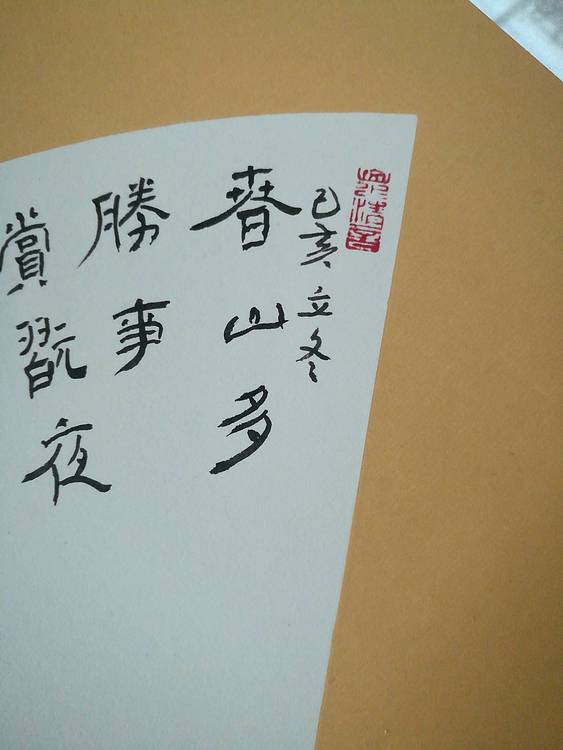 己亥立冬
春山多
勝事
賞翫夜